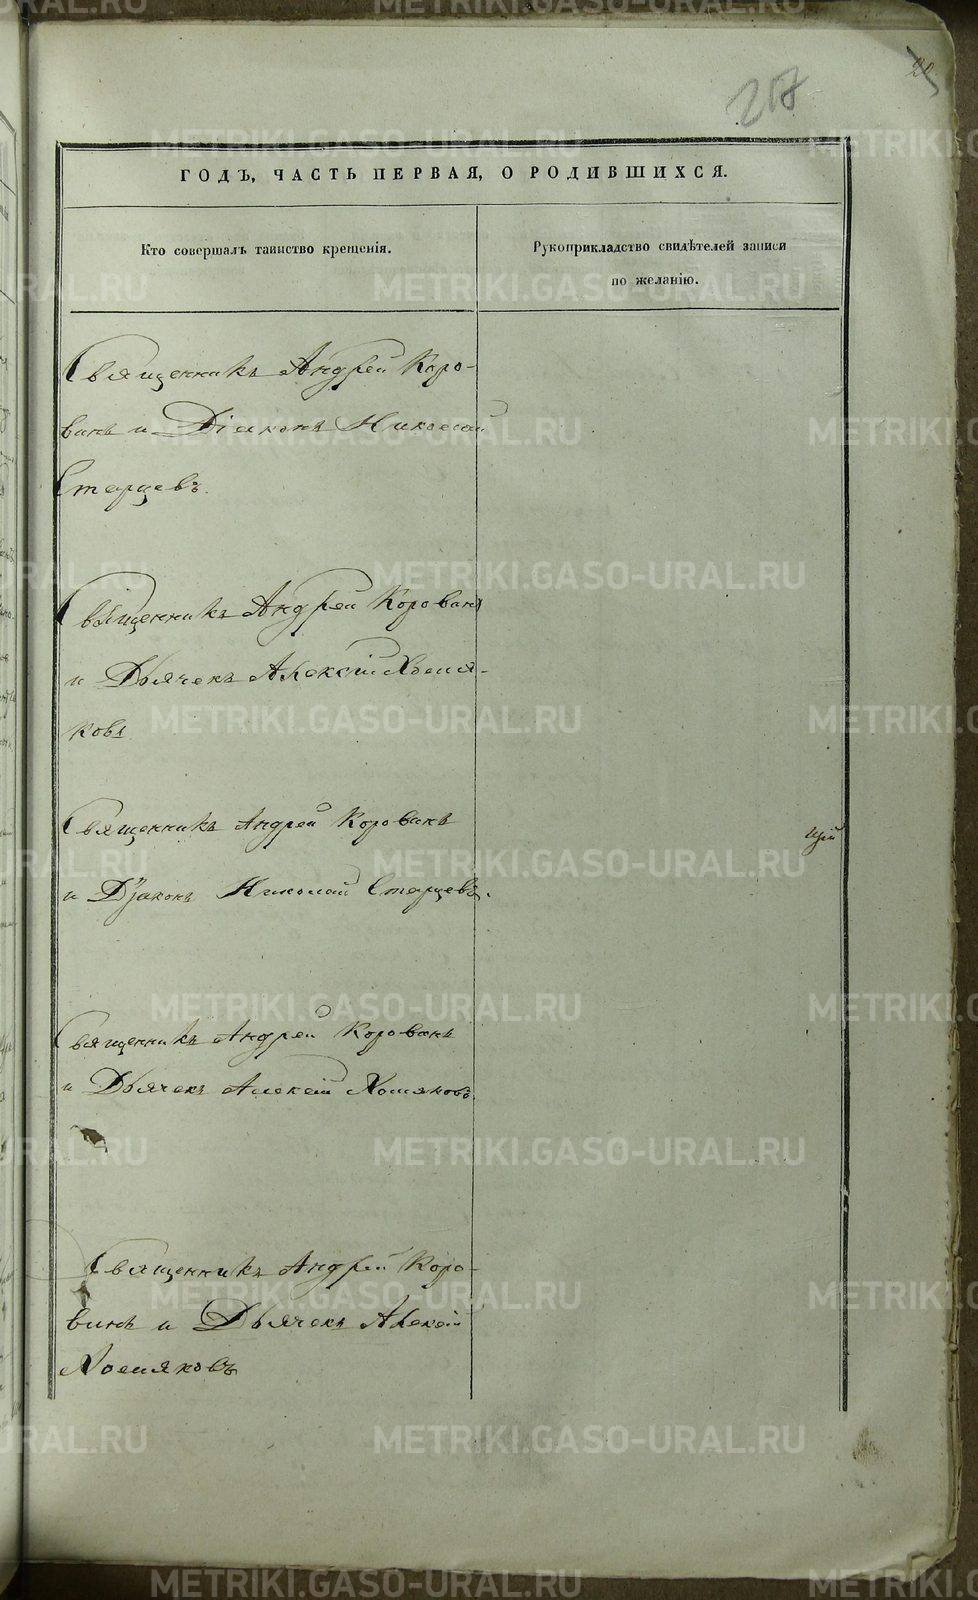 20
217
ГОДЪ, ЧАСТЬ ПЕРВАЯ, О РОДИВШИХСЯ.
Кто совершалъ таинство крещенія.
Рукоприкладство свидѣтелей записи
по желанію.
Священникъ Андрей Коро-
винъ и Діаконъ Николай
Старцевъ.
Священникъ Андрей Коровинъ
и Дьячекъ Алексій Хомя-
ковъ
Священникъ Андрей Коровинъ
и Діаконъ Николай Старцевъ.
Священникъ Андрей Коровинъ
и Дьячекъ Алексій Хомяковъ.
Священникъ Андрей Коро-
винъ и Дьячекъ Алексій
Хомяковъ
METRIKI.GASO-URAL.RU